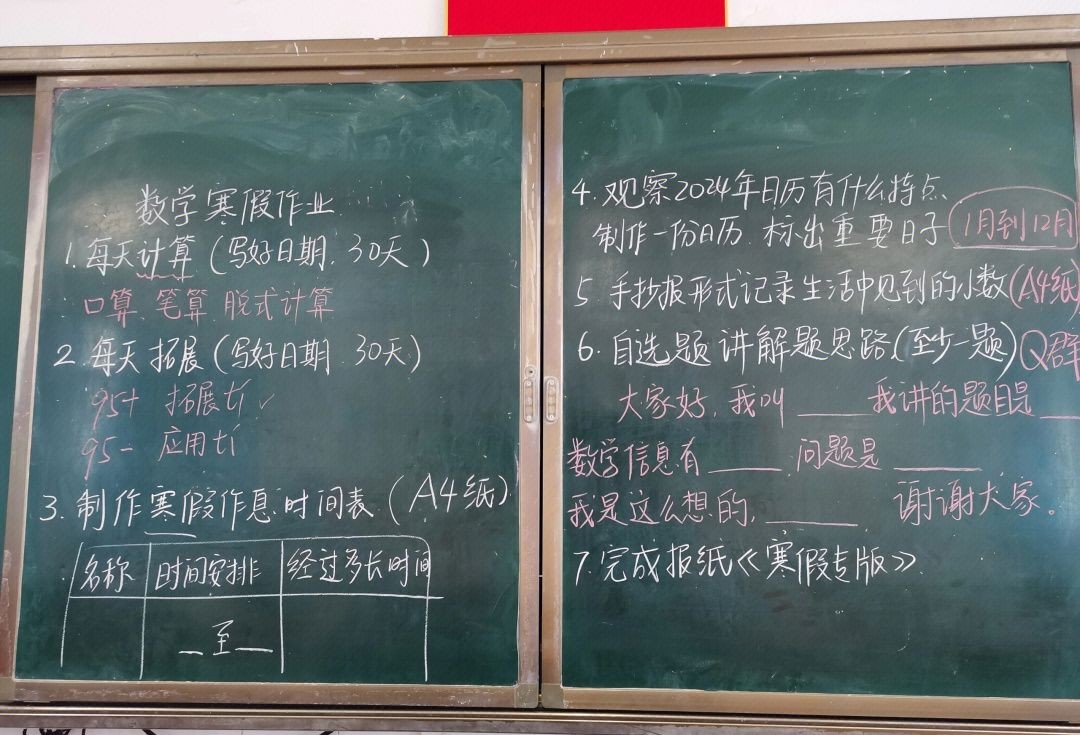 数学寒假作业
1. 每天计算（写好日期. 30天）
口算. 笔算 脱式计算
2. 每天拓展（写好日期. 30天）
95+ 拓展ti ✓
95- 应用ti
3. 制作寒假作息时间表（A4纸）
名称 时间安排 经过多长时间
_至_
4. 观察2024年日历有什么特点、
制作一份日历. 标出重要日子 1月到12月
5 手抄报形式记录生活中见到的小数(A4纸)
6. 自选题讲解题思路(至少一题) Q群
大家好, 我叫____ 我讲的题目是__
数学信息有____ 问题是____
我是这么想的,____ 谢谢大家。
7. 完成报纸《寒假专版》.